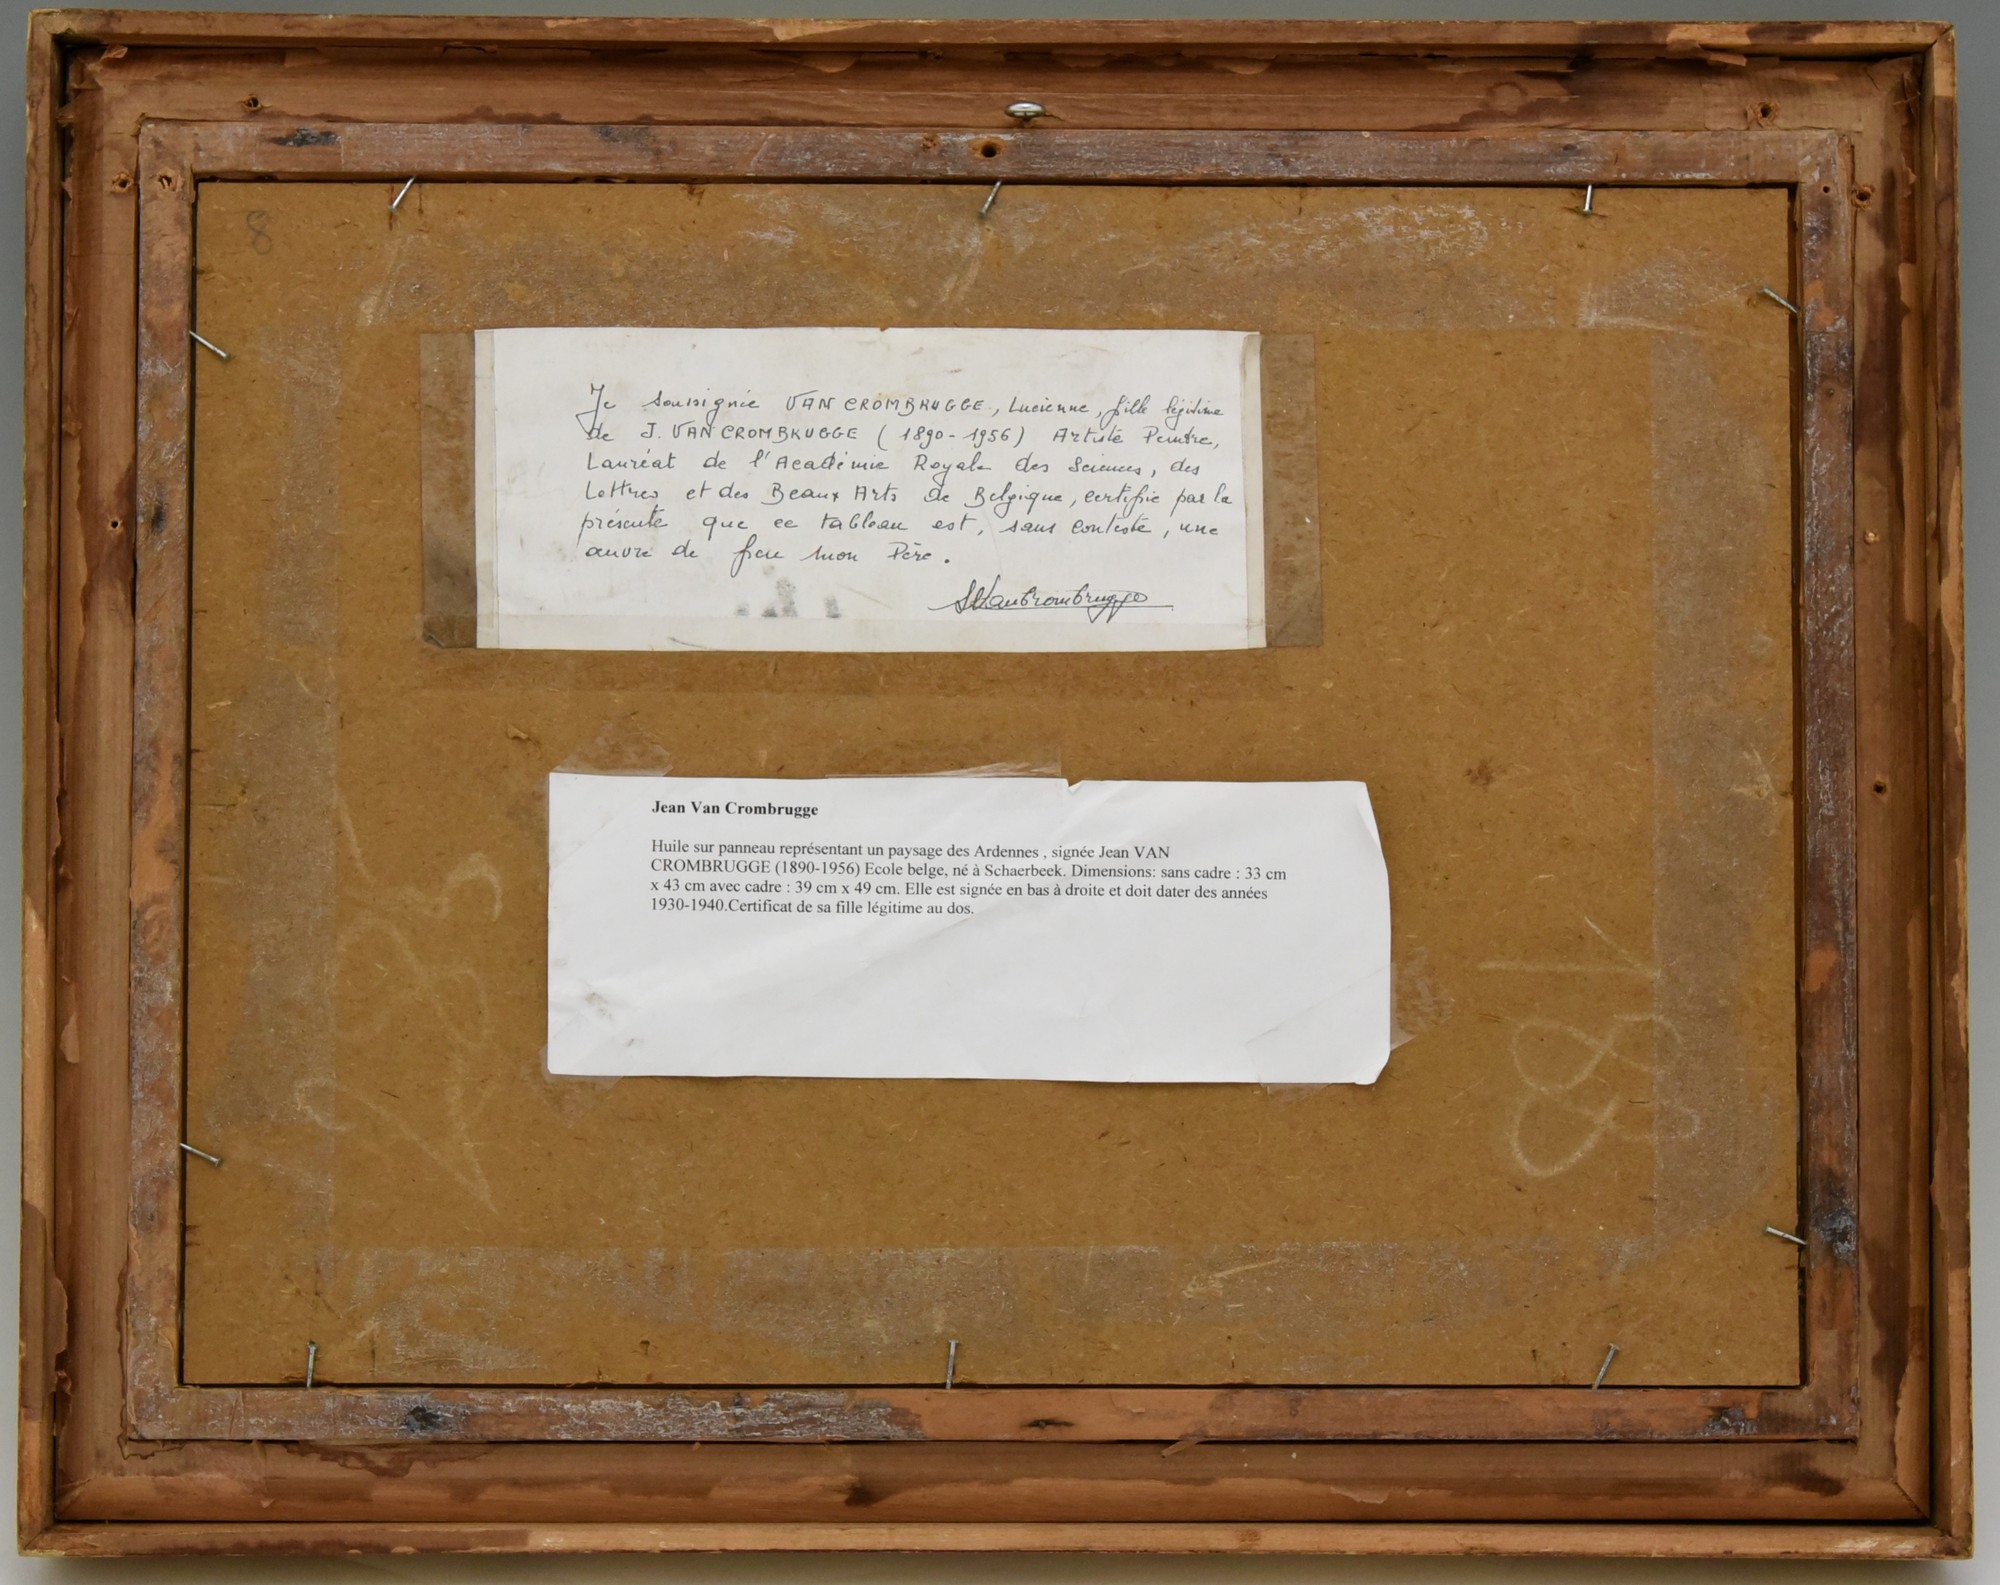 8
Je soussignée VAN CROMBRUGGE, Lucienne, fille légitime
de J. VAN CROMBRUGGE (1890-1956) Artiste Peintre,
Lauréat de l'Académie Royale des Sciences, des
Lettres et des Beaux Arts de Belgique, certifie par la
présente que ce tableau est, sans conteste, une
œuvre de feu mon Père.
VanCrombrugge
Jean Van Crombrugge
Huile sur panneau représentant un paysage des Ardennes , signée Jean VAN
CROMBRUGGE (1890-1956) Ecole belge, né à Schaerbeek. Dimensions: sans cadre : 33 cm
x 43 cm avec cadre : 39 cm x 49 cm. Elle est signée en bas à droite et doit dater des années
1930-1940.Certificat de sa fille légitime au dos.